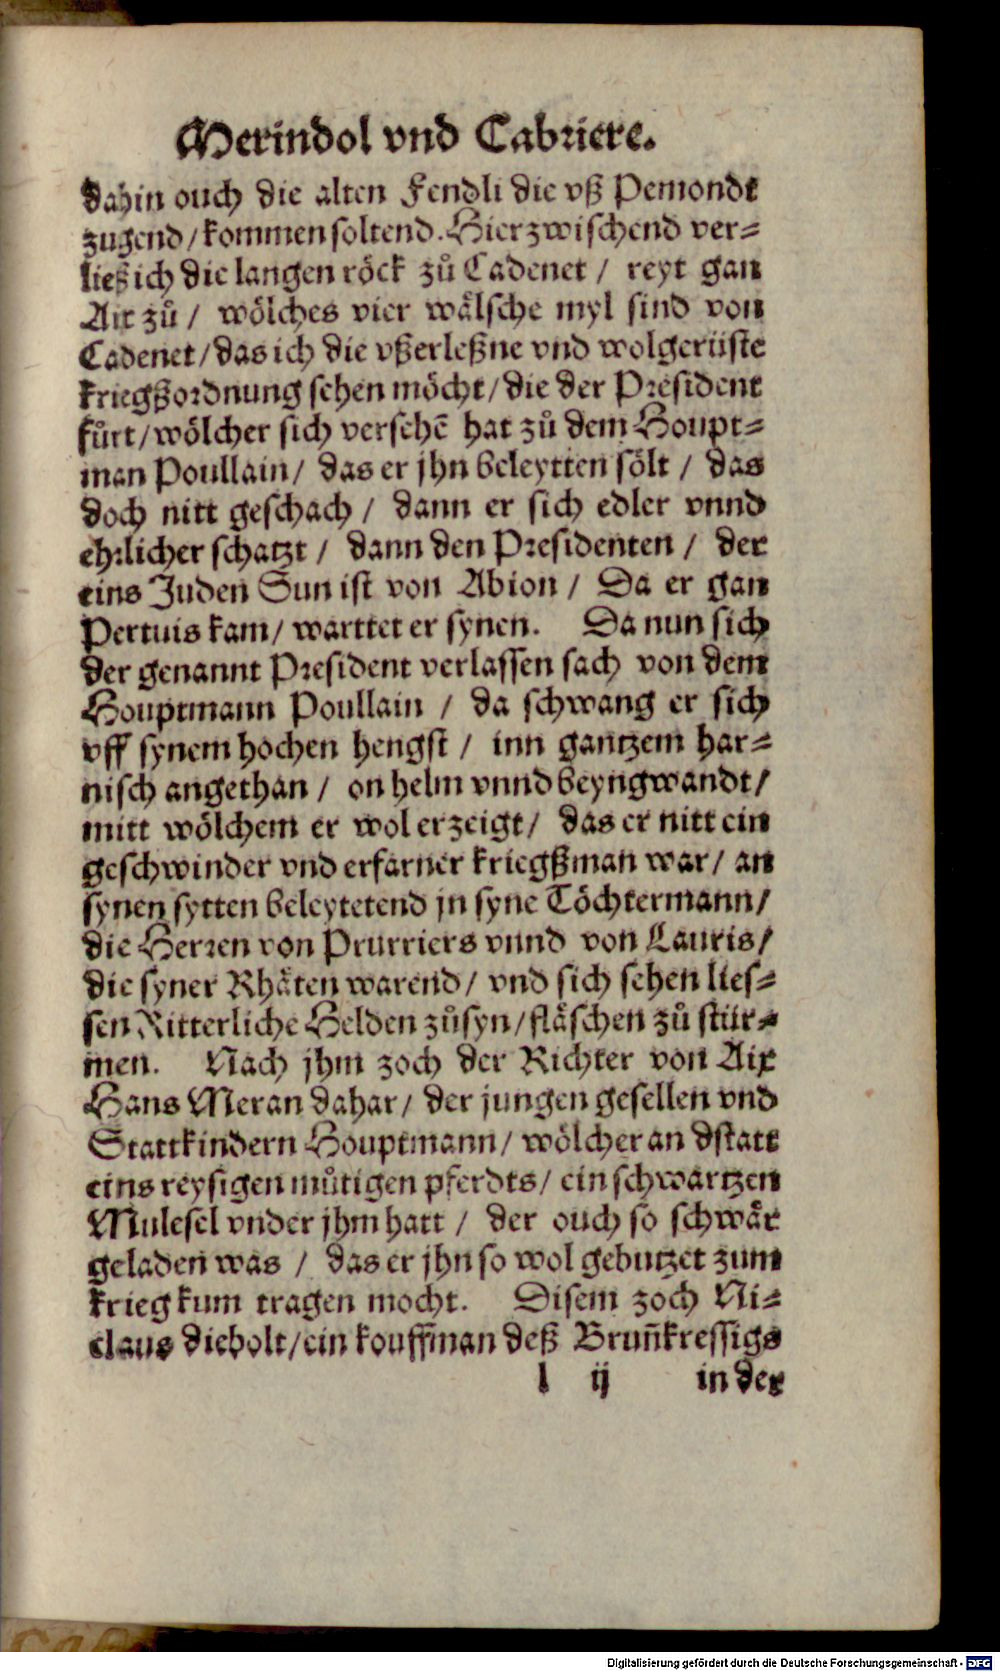 Merindol vnd Cabriere.
dahin ouch die alten Fendli die vß Pemondt
zugend / kommen soltend. Hierzwischend ver⸗
ließ ich die langen röck zů Cadenet / reyt gan
Aix zů / wölches vier wälsche myl sind von
Cadenet / das ich die vßerleßne vnd wolgerüste
kriegßordnung sehen möcht / die der President
fůrt / wölcher sich versehē hat zů dem Houpt⸗
man Poullain / das er jhn beleytten sölt / das
doch nitt geschach / dann er sich edler vnnd
ehrlicher schatzt / dann den Presidenten / der
eins Juden Sun ist von Abion / Da er gan
Pertuis kam / warttet er synen. Da nun sich
der genannt President verlassen sach von dem
Houptmann Poullain / da schwang er sich
vff synem hochen hengst / inn gantzem har⸗
nisch angethan / on helm vnnd beyngwandt /
mitt wölchem er wol erzeigt / das er nitt ein
geschwinder vnd erfarner kriegßman war / an
synen sytten beleytetend jn syne Töchtermann /
die Herren von Prurriers vnnd von Lauris /
die syner Rhäten warend / vnd sich sehen lies⸗
sen Ritterliche Helden zůsyn / fläschen zů stür⸗
men. Nach jhm zoch der Richter von Aix
Hans Meran dahar / der jungen gesellen vnd
Stattkindern Houptmann / wölcher an dstatt
eins reysigen můtigen pferdts / ein schwartzen
Mulesel vnder jhm hatt / der ouch so schwär
geladen was / das er jhn so wol gebutzet zum
krieg kum tragen mocht. Disem zoch Ni⸗
claus diebolt / ein kouffman deß Brun̄kressigs
l ij in der
Digitalisierung gefördert durch die Deutsche Forschungsgemeinschaft - DFG